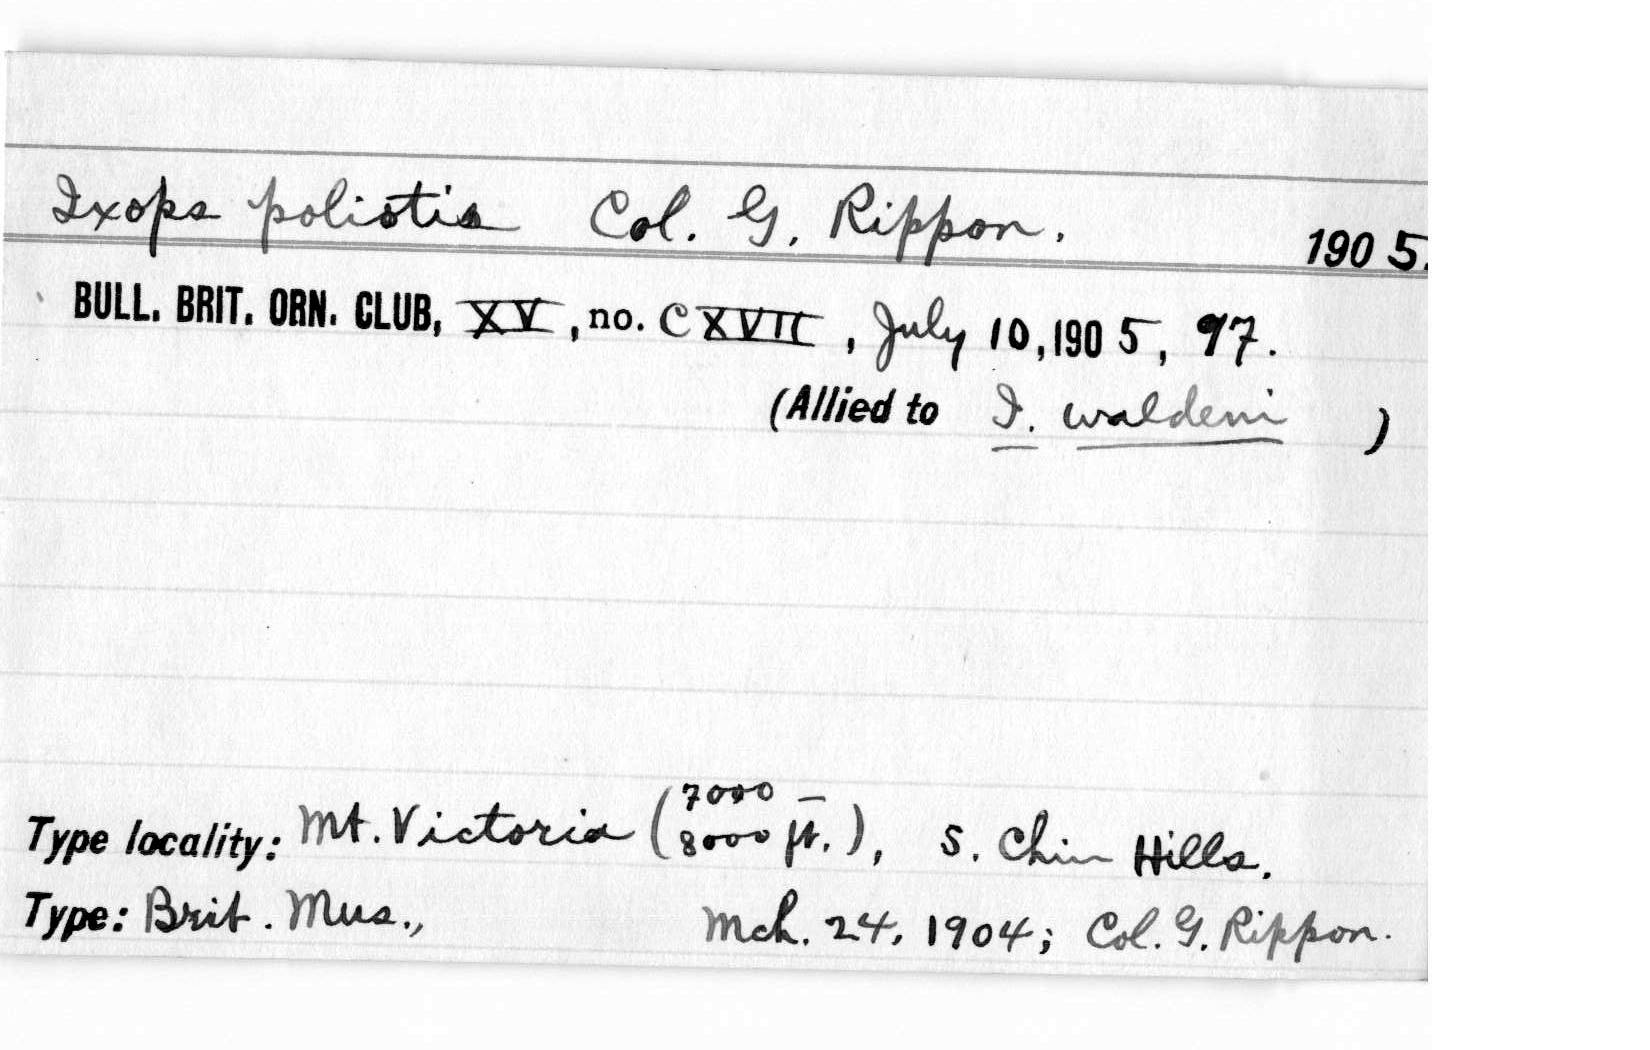 Ixops poliotis Col. G. Rippon. 1905.
BULL. BRIT. ORN. CLUB, XV, no. CXVII, July 10, 1905, 97.
(Allied to I. waldeni )
Type locality: Mt. Victoria (7000 – 8000 ft.), S. Chin Hills.
Type: Brit. Mus., Mch. 24, 1904; Col. G. Rippon.